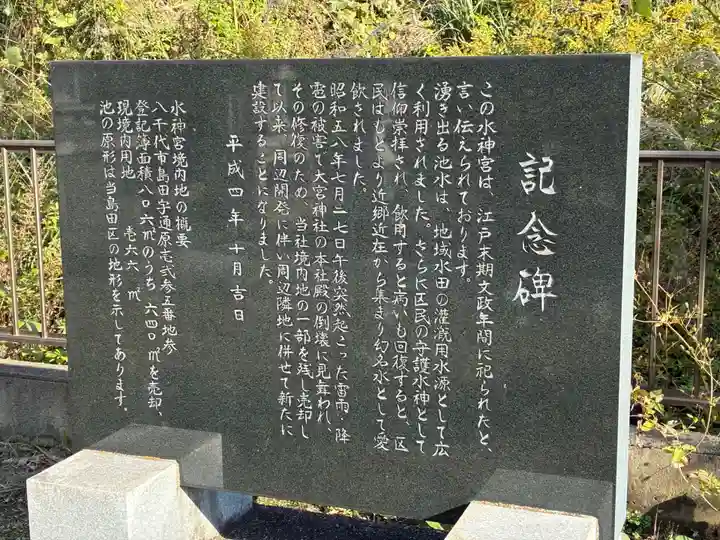 記念碑
この水神宮は、江戸末期文政年間に祀られたと、
言い伝えられております。
湧き出る池水は、地域水田の灌漑用水源として広
く利用されました。さらに区民の守護水神として
信仰崇拝され、飲用すると病いも回復すると、区
民はもとより近郷近在から集まり幻名水として愛
飲されました。
昭和五八年七月二七日午後突然起こった雷雨・降
雹の被害で大宮神社の本社殿の倒壊に見舞われ、
その修復のため、当社境内地の一部を残し売却し
て以来、周辺開発に伴い周辺隣地に併せて新たに
建設することになりました。
平成四年十月吉日
水神宮境内地の概要
八千代市島田字通原壱弐参五番地参
登記簿面積八〇六㎡のうち 六四〇㎡を売却、
現境内用地 壱六六㎡
池の原形は当島田区の地形を示してあります。